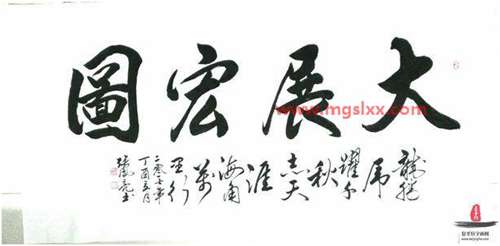 大展宏圖
龍騰
虎
躍
秋
志天
涯
海角
萬
里行
二零一七年
丁酉五月
www.mgslxx.com